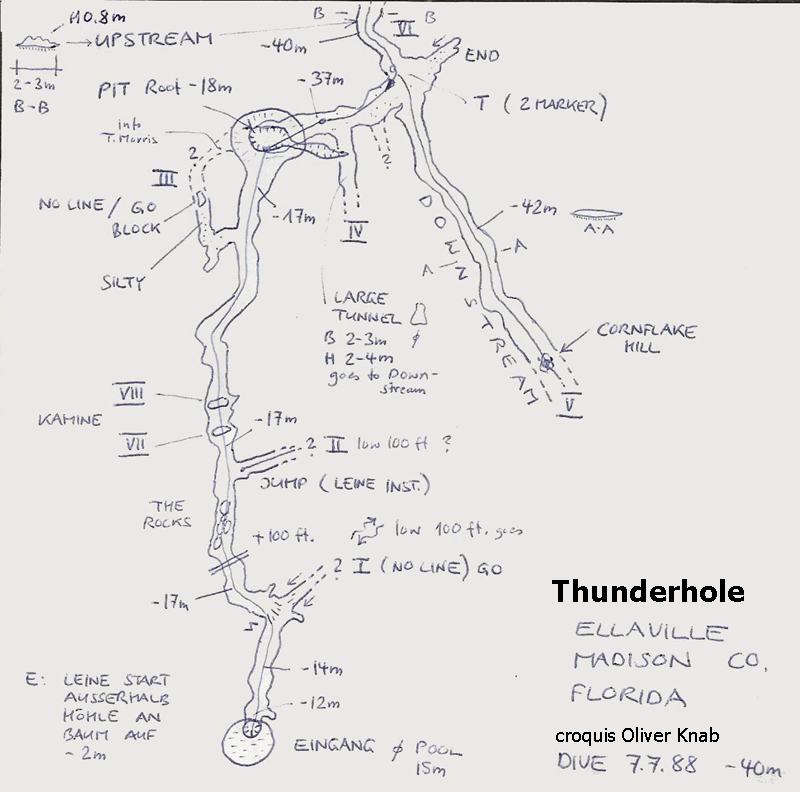 H0.8m
→ UPSTREAM
2-3m
B-B
B
VI
B
-40m
END
PIT Root -18m
-37m
T (2 MARKER)
into
T. Morris
2
III
2
NO LINE / GO
BLOCK
-17m
IV
-42m
A-A
-A
A
DOWNSTREAM
SILTY
LARGE
TUNNEL
B 2-3m ϕ
H 2-4m
goes to Down-
stream
CORNFLAKE
HILL
V
VIII
KAMINE
VII
-17m
2 II low 100 ft ?
JUMP (LEINE INST.)
THE
ROCKS
+100 ft.
low 100 ft. goes
2 I (NO LINE) GO
-17m
Thunderhole
ELLAVILLE
MADISON CO.
FLORIDA
croquis Oliver Knab
DIVE 7.7.88 -40m
-14m
-12m
E: LEINE START
AUSSERHALB
HÖHLE AN
BAUM AUF
-2m
EINGANG ϕ POOL
15m